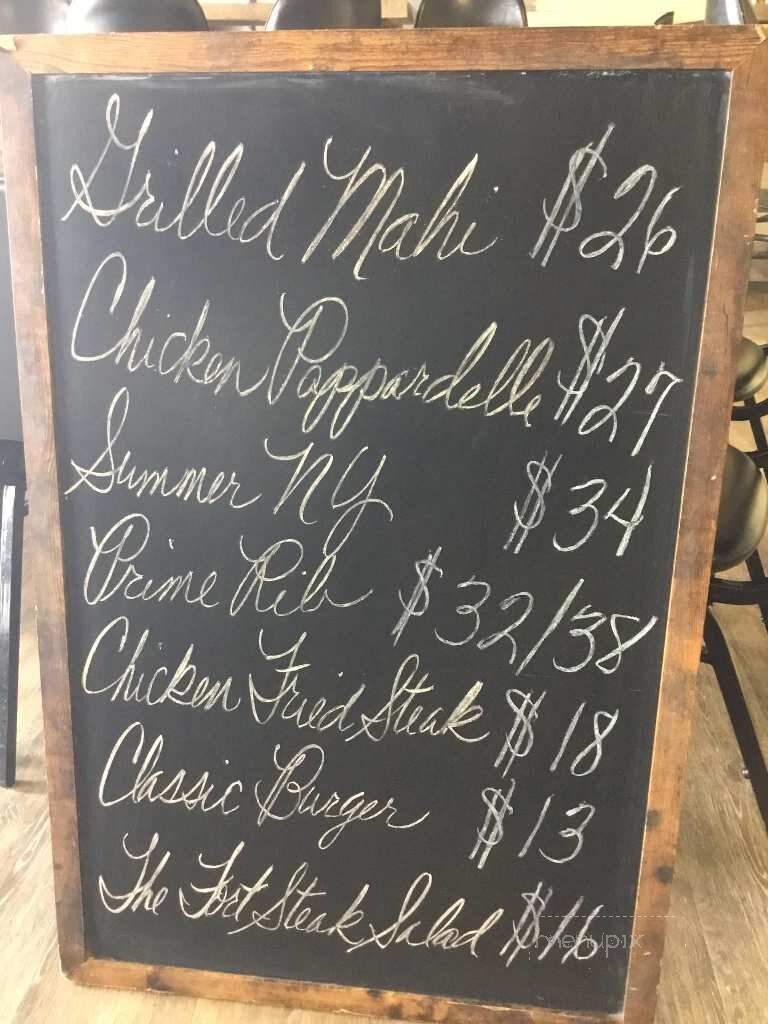 Grilled Mahi $26
Chicken Pappardelle $27
Summer NY $34
Prime Rib $32/38
Chicken Fried Steak $18
Classic Burger $13
The Fort Steak Salad $16
menupix